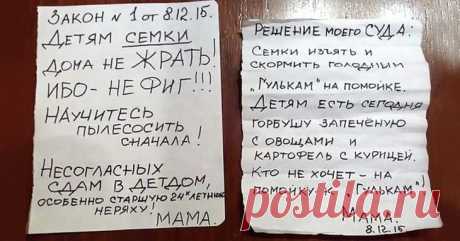 ЗАКОН N 1 от 8.12.15.
ДЕТЯМ СЕМКИ
ДОМА НЕ ЖРАТЬ!
ИБО - НЕ ФИГ!!!
НАУЧИТЕСЬ
ПЫЛЕСОСИТЬ
СНАЧАЛА!
НЕСОГЛАСНЫХ
СДАМ В ДЕТДОМ,
ОСОБЕННО СТАРШУЮ 24х ЛЕТНЮЮ
НЕРЯХУ!
МАМА.
РЕШЕНИЕ МОЕГО СУДА:
СЕМКИ ИЗЪЯТЬ И
СКОРМИТЬ ГОЛОДНЫМ
„ГУЛЬКАМ" НА ПОМОЙКЕ.
ДЕТЯМ ЕСТЬ СЕГОДНЯ
ГОРБУШУ ЗАПЕЧЕНУЮ
С ОВОЩАМИ И
КАРТОФЕЛЬ С КУРИЦЕЙ.
КТО НЕ ХОЧЕТ - НА
ПОМОЙКУ К „ГУЛЬКАМ"!
МАМА.
8.12.15
postila.ru